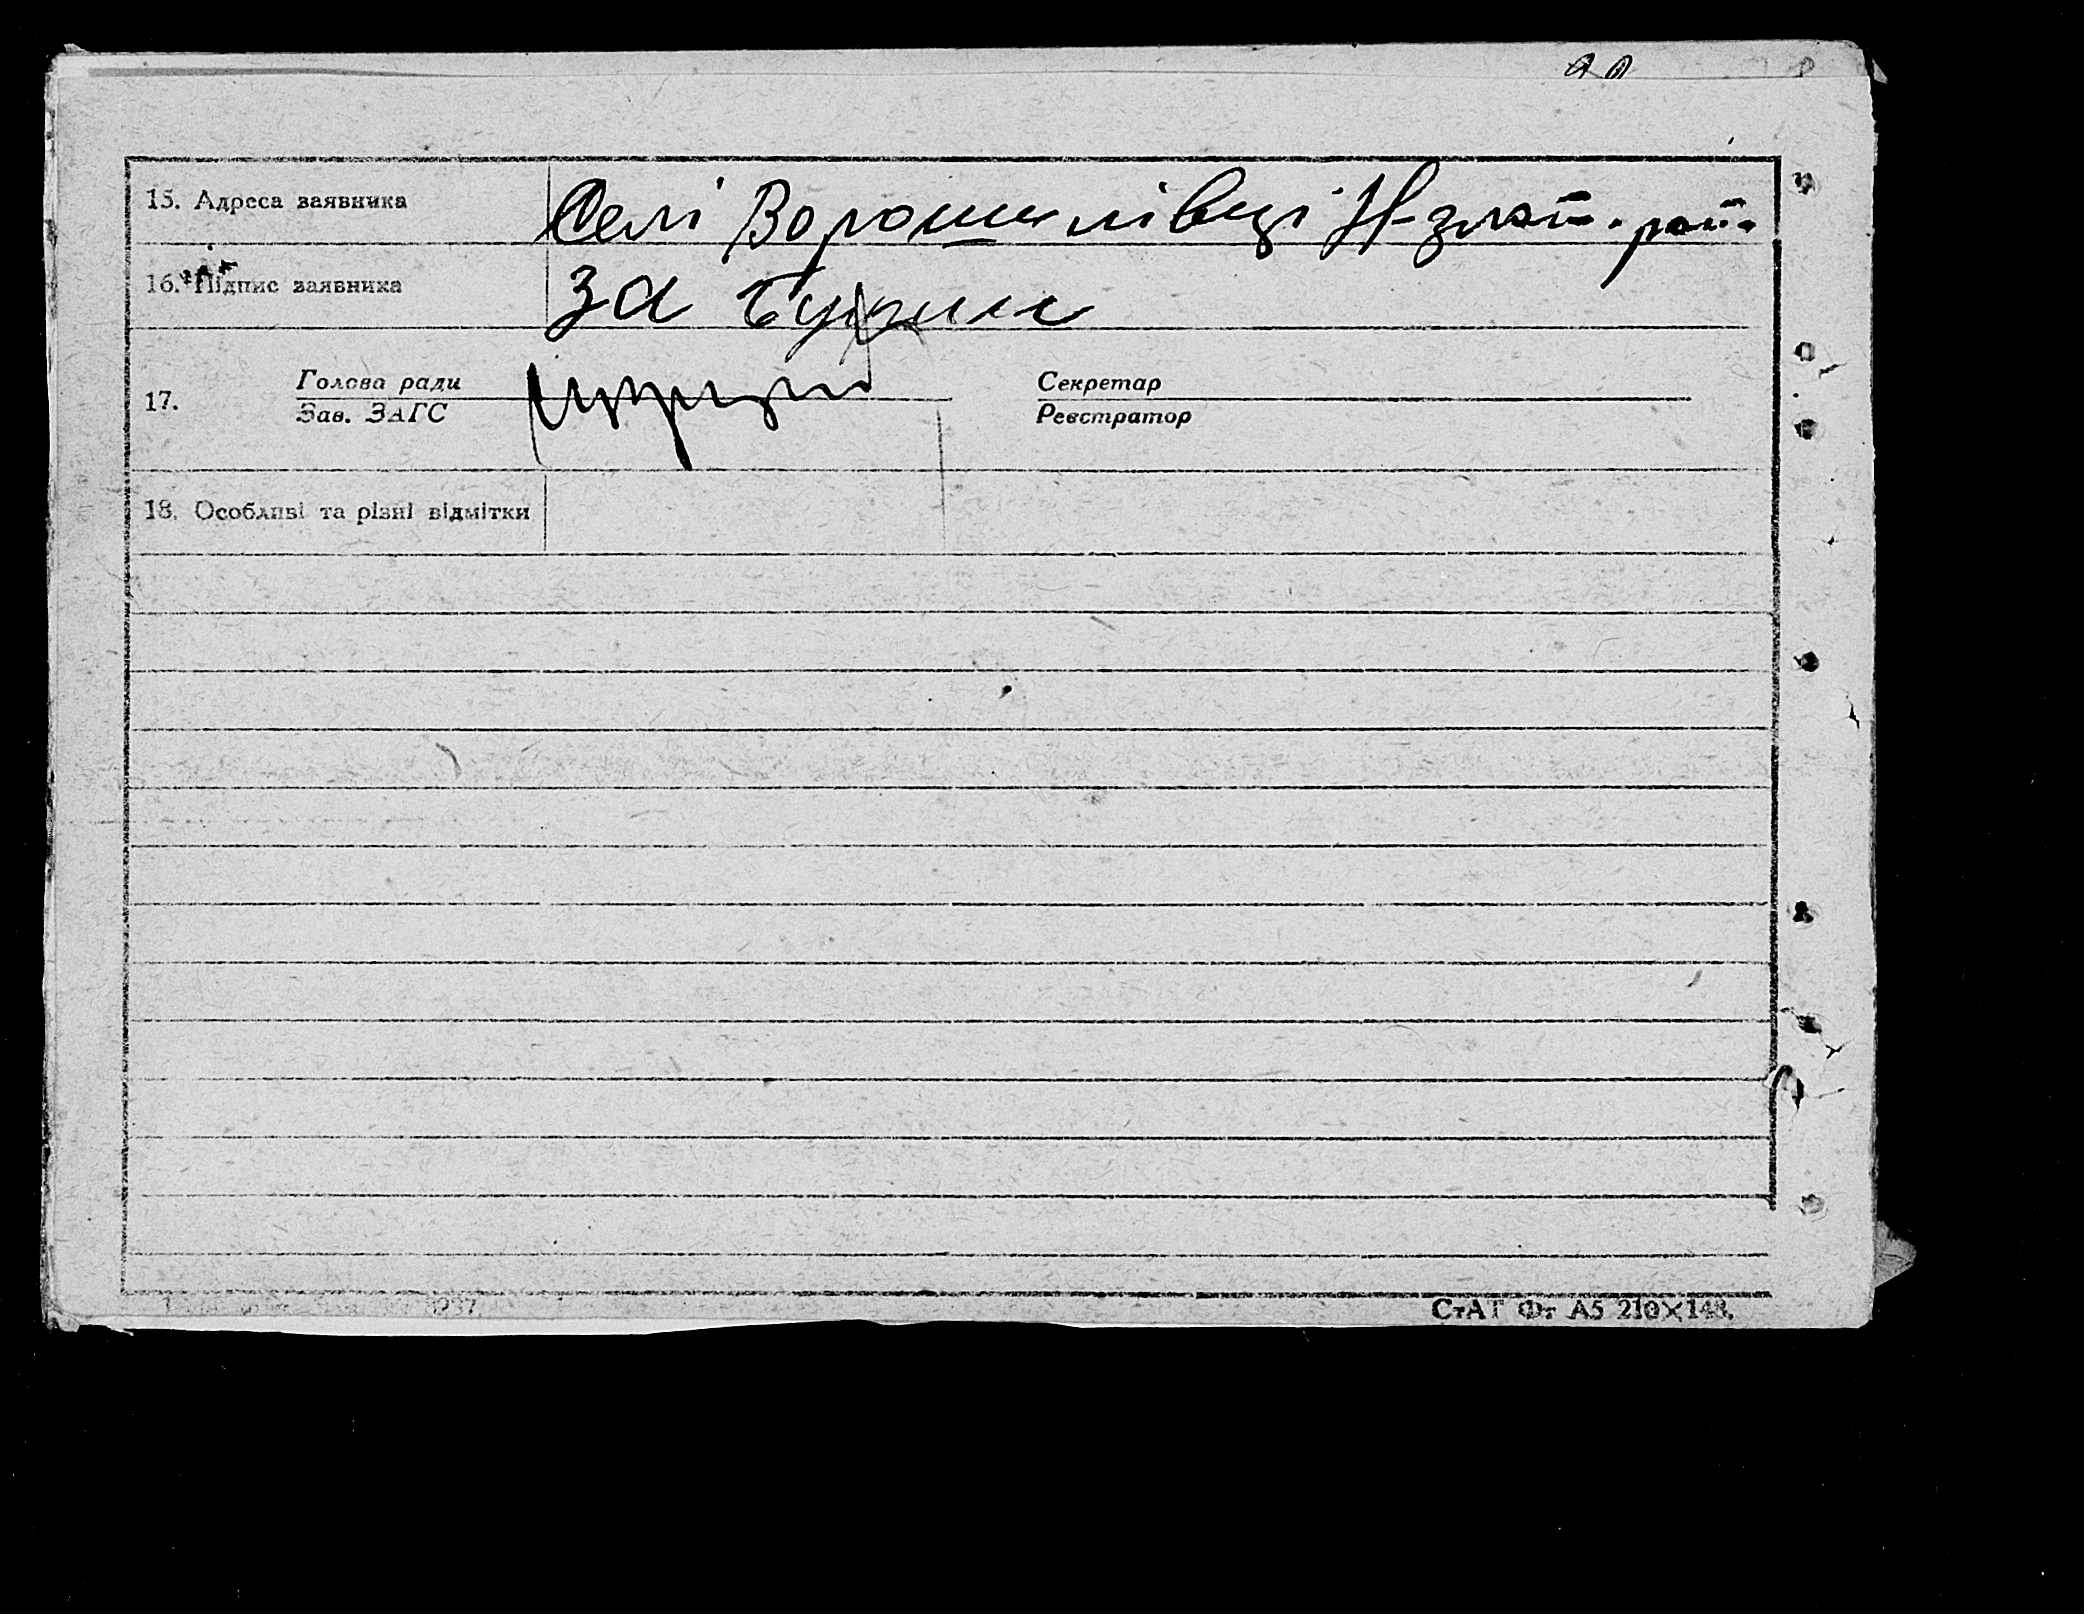 15. Адреса заявника Селі Ворошилівці Н-злат. рай.
16. Підпис заявника За
17. Голова ради Секретар
Зав. ЗАГС Реєстратор
18. Особливі та різні відмітки
СтАТ Фт А5 210×148.